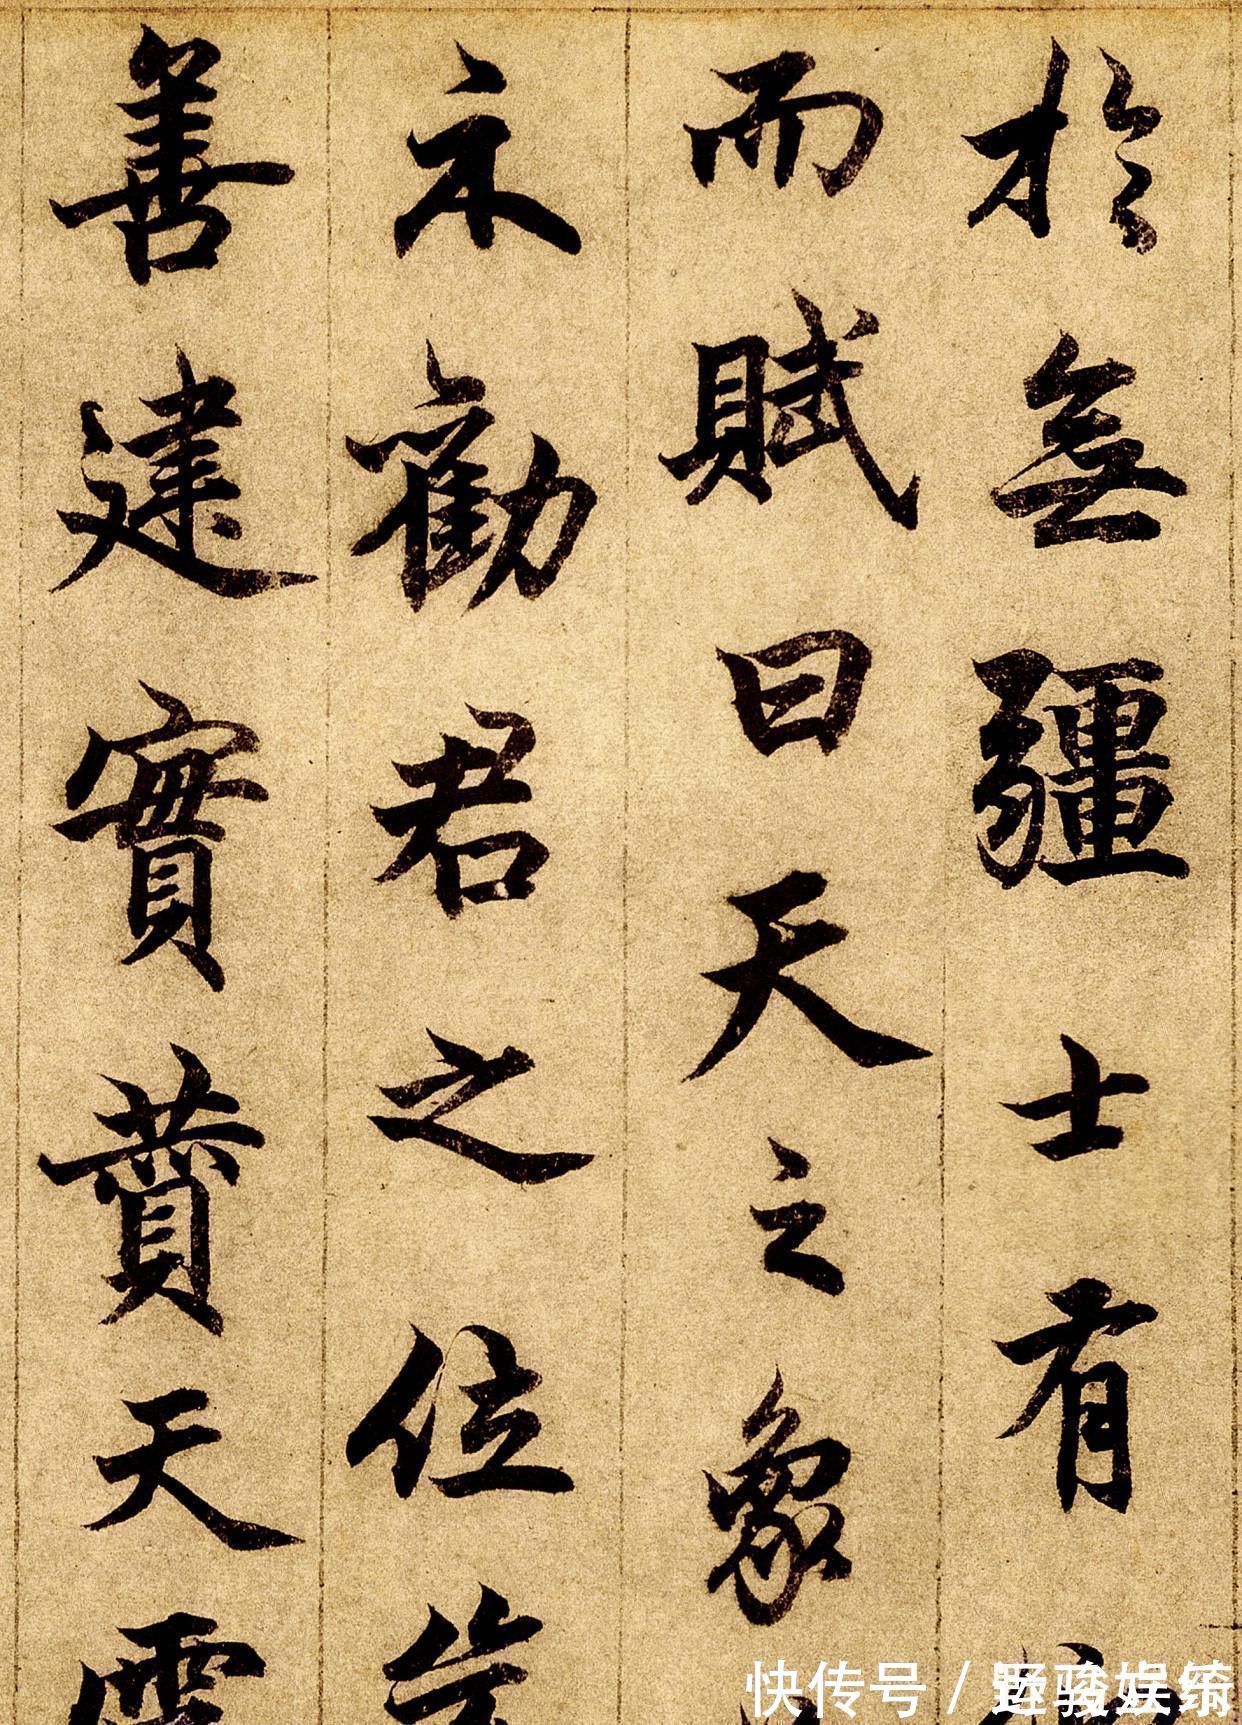 於無疆士有
而賦曰天之象
示勸君之位
善建實賁天
快传号/